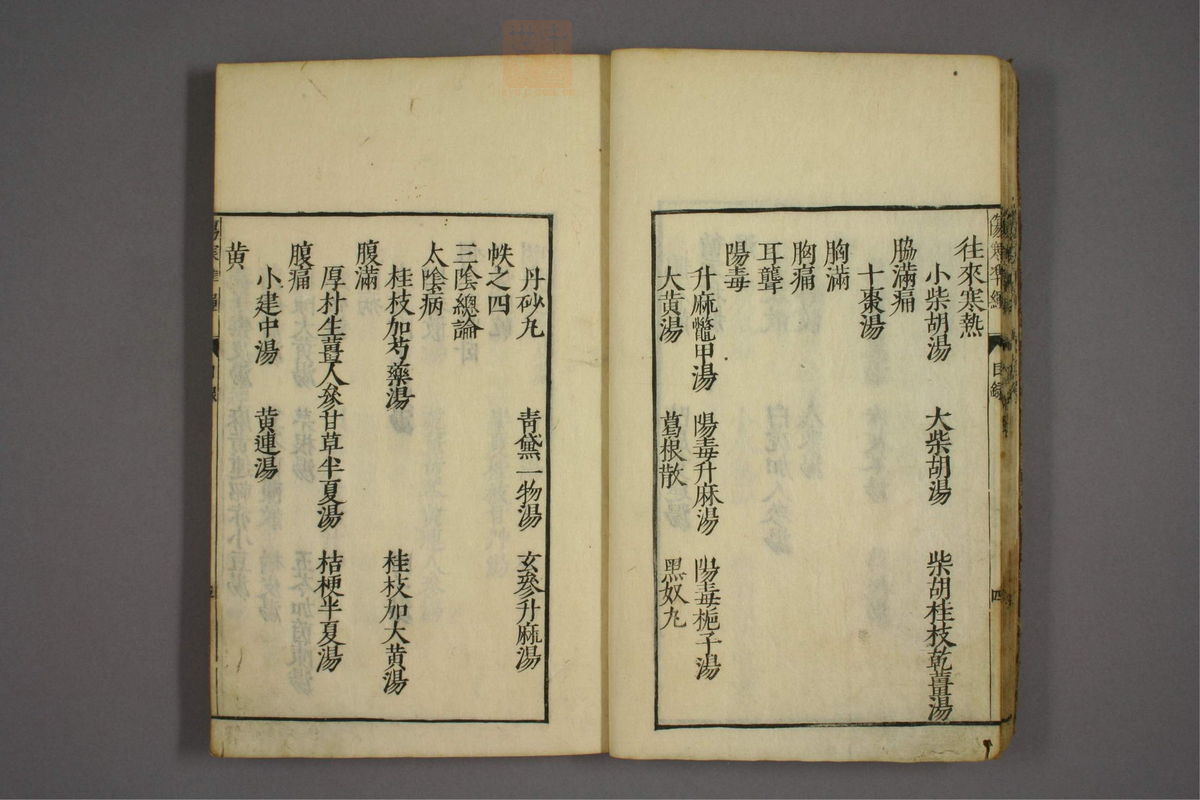 往來寒熱
小柴胡湯 大柴胡湯 柴胡桂枝乾薑湯
脇滿痛
十棗湯
胸滿
胸痛
耳聾
陽毒
升麻鱉甲湯 陽毒升麻湯 陽毒梔子湯
大黃湯 葛根散 黑奴丸
丹砂丸 青黛一物湯 玄參升麻湯
帙之四
三陰總論
太陰病
桂枝加芍藥湯 桂枝加大黃湯
腹滿
厚朴生薑人參甘草半夏湯 桔梗半夏湯
腹痛
小建中湯 黃連湯
黃
目錄
四